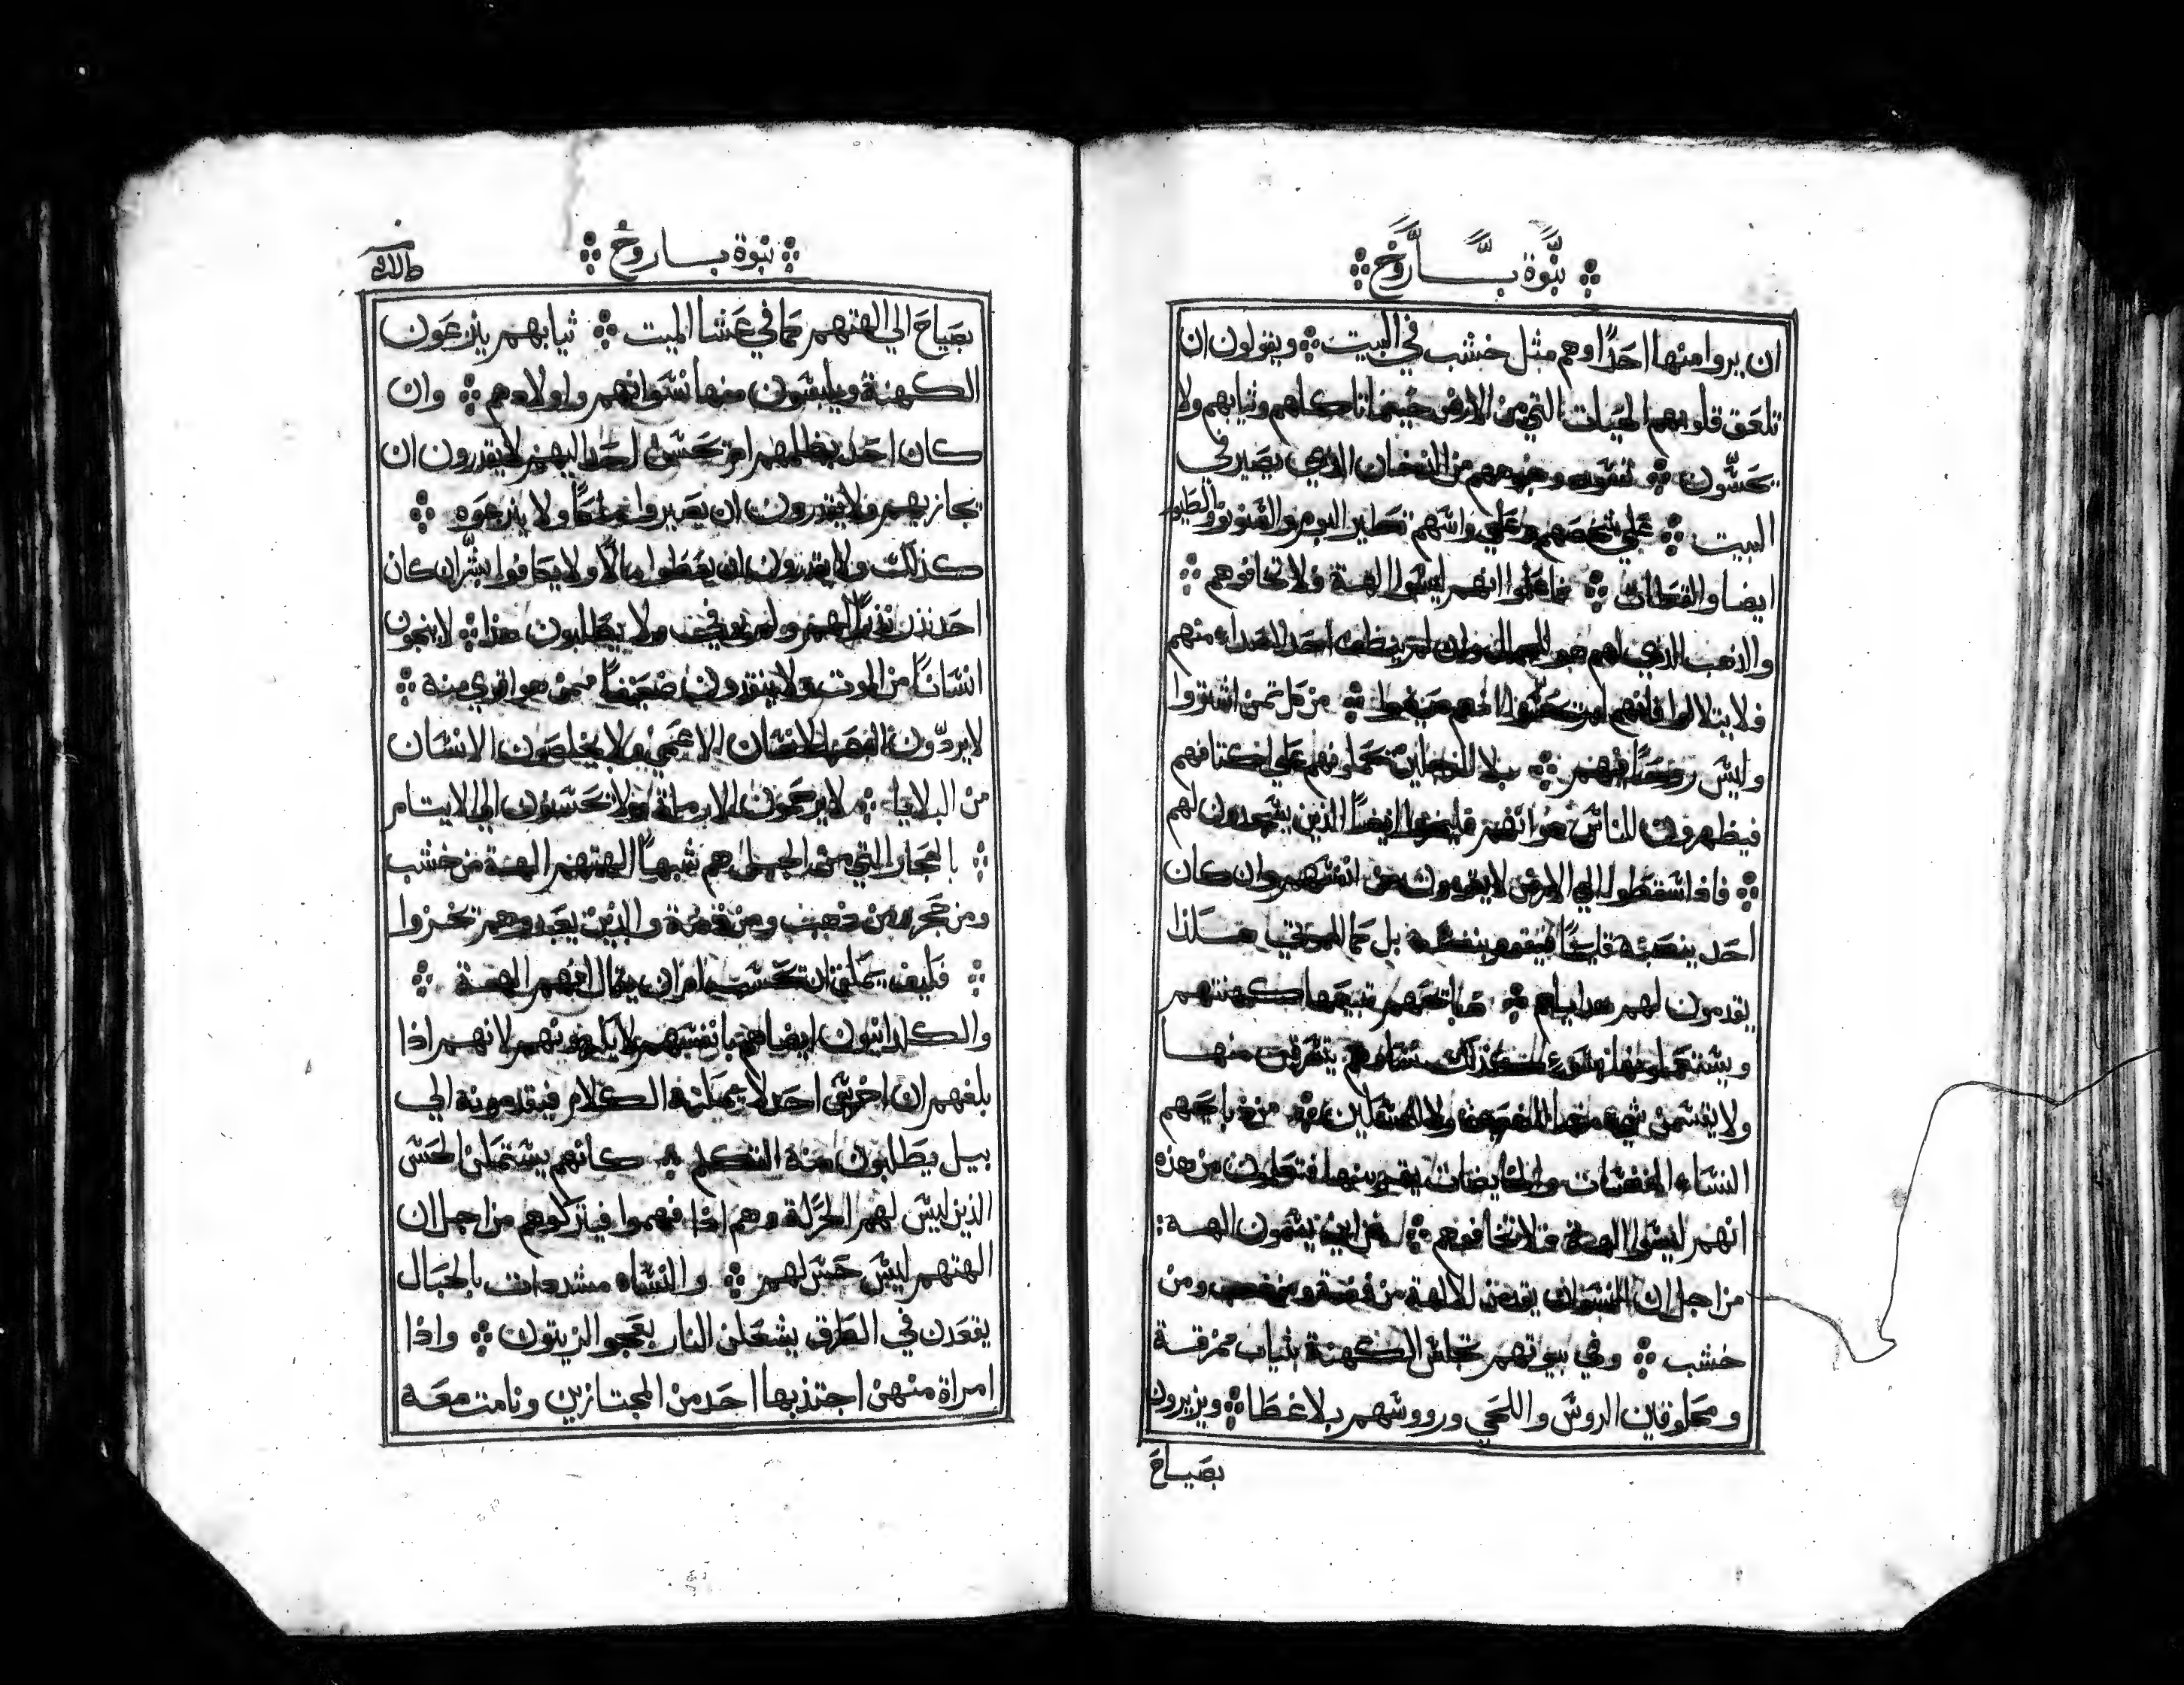 نبوة باروخ
ان يروا منها احدًا وهم مثل خشب في البيت ويقولون ان
تلعق قلوبهم الحيات التي من الارض حينما تاكلهم وثيابهم ولا
يحسّون تسود وجوههم من الدخان الذي يصير في
البيت علي شخصهم وعلي راسهم تطير البوم والسنونو والطيور
ايضا والقطاط فاعلموا انهم ليسوا الهة ولا تخافوهم
والذهب الذي لهم هو للجمال وان لم ينظف احد الاصداء منهم
فلا يتلالوا فانهم لم يحسّوا اذ هم من كل ثمن اشتروا
وليس روحًا فيهم بلا الرجلين يحملونهم علي اكتافهم
فيظهرون للناس هوانهم فليخزوا ايضًا الذين يسجدون لهم
فاذا سقطوا الي الارض لا يقومون من انفسهم وان كان
احد ينصبه قايمًا فيقوم بنفسه بل كما للموتي هكذا
يقدمون لهم هداياهم ذبايحهم تبيعها كهنتهم
ويستعملونها بسوء كذلك نساوهم يتفرقن منها
ولا يقسمن شي منها للضعيف ولا للمتسولين من ذبايحهم
النساء النفسات والحايضات فتعلمون من هذه
انهم ليسوا الهة فلا تخافوهم لمن اين يسمون الهة
من اجل ان النسوان يقدمن للالهة من فضة ومن ذهب ومن
خشب وفي بيوتهم تجلس الكهنة بثياب ممزقة
ومحلوقين الروس واللحي ورووسهم بلا غطا ويزيرون
بصياح
نبوة باروخ
بصياح الي الهتهم كما في عشا الميت ثيابهم ينزعون
الكهنة ويلبسون منها نسوانهم واولادهم وان
كان احد يظلمهم ام يحسن احد اليهم لا يقدرون ان
يجازيهم ولا يقدرون ان يصيروا ملكًا ولا ينزعوه
كذلك ولا يقدرون ان يعطوا مالًا ولا يكافوا بشّر ان كان
احد نذر نذرًا لهم ولم يوفي ولا يطلبون هذا لا ينجون
انسانًا من الموت ولا ينقذون ضعيفًا ممن هو اقوي منه
لا يردّون البصر للانسان الاعمي ولا يخلصون الانسان
من البلايا لا يرحمون الارملة ولا يحسنون الي الايتام
بالحجار التي من الجبل هم شبهًا الهتهم الهة من خشب
ومن حجر ومن ذهب ومن فضة والذين يعبدوهم تخزوا
فكيف يمكن ان تحسب ام ان يقال انهم الهة
والكلدانيون ايضا هم بانفسهم لا يكرمونهم لانهم اذا
بلغهم ان اخرس احد لا يمكنه الكلام فيقدمونه الي
بيل يطلبون منه التكلم كانهم يستمكن الحس
الذين ليس لهم الحركة وهم اذا فهموا فيتركوهم من اجل ان
الهتهم ليس حس لهم والنساء مشددات بالحبال
يقعدن في الطرق يشعلن النار بعجو الزيتون واذا
امراة منهن اجتذبها احد من المجتازين ونامت معه